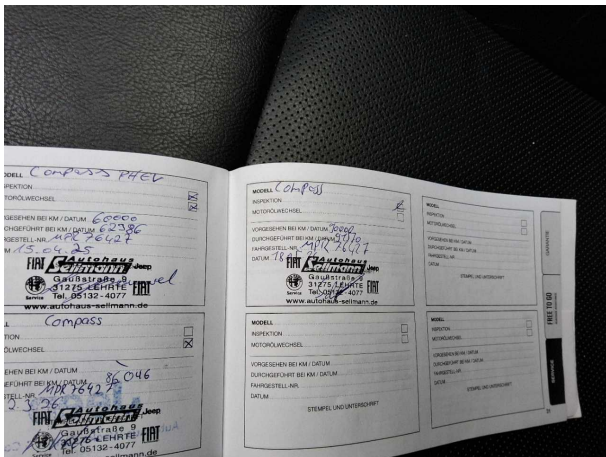 MODELL Compass PHEV
SPEKTION
TORÖLWECHSEL
GESEHEN BEI KM / DATUM 60000
CHGEFÜHRT BEI KM / DATUM 62386
RGESTELL-NR. MPR 76427
M 15.04.25
Autohaus
FIAT Sellmann Jeep
Gaußstraße 9
31275 LEHRTE FIAT
Service Tel. 05132 - 4077
www.autohaus-sellmann.de
LL Compass
ON
ÖLWECHSEL
EHEN BEI KM / DATUM
EFÜHRT BEI KM / DATUM 86046
STELL-NR. MPR76427
2.3.26
Autohaus
FIAT Sellmann Jeep
Gaußstraße 9
31275 LEHRTE FIAT
Service Tel. 05132 - 4077
www.autohaus-sellmann.de
MODELL Compass
INSPEKTION
MOTORÖLWECHSEL
VORGESEHEN BEI KM / DATUM 90000
DURCHGEFÜHRT BEI KM / DATUM
FAHRGESTELL-NR. MPR 76427
DATUM
Autohaus
FIAT Sellmann Jeep
Gaußstraße 9
31275 LEHRTE FIAT
Service Tel. 05132 - 4077
www.autohaus-sellmann.de
MODELL
INSPEKTION
MOTORÖLWECHSEL
VORGESEHEN BEI KM / DATUM
DURCHGEFÜHRT BEI KM / DATUM
FAHRGESTELL-NR.
DATUM
STEMPEL UND UNTERSCHRIFT
MODELL
INSPEKTION
MOTORÖLWECHSEL
VORGESEHEN BEI KM / DATUM
DURCHGEFÜHRT BEI KM / DATUM
FAHRGESTELL-NR.
DATUM
STEMPEL UND UNTERSCHRIFT
MODELL
INSPEKTION
MOTORÖLWECHSEL
VORGESEHEN BEI KM / DATUM
DURCHGEFÜHRT BEI KM / DATUM
FAHRGESTELL-NR.
DATUM
STEMPEL UND UNTERSCHRIFT
GARANTIE
FREE TO GO
SERVICE